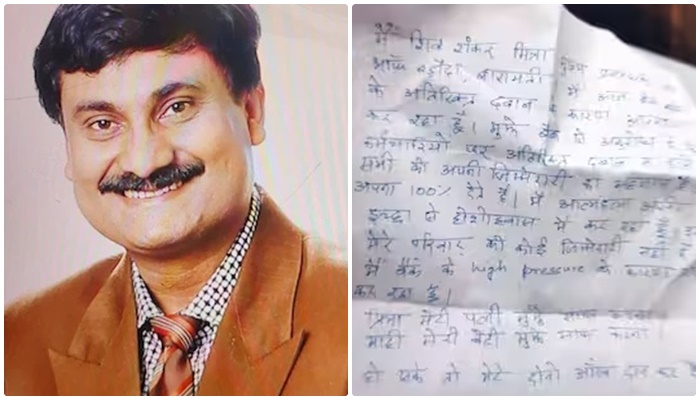 मैं शिव शंकर मित्रा मुख्य प्रबन्धक
ऑफ बड़ौदा, बारामती में आज बैंक
के अतिरिक्त दबाव के कारण आत्म
कर रहा हूँ। मुझे बैंक से अनुरोध है
कर्मचारियों पर अतिरिक्त दबाव न
सभी को अपनी जिम्मेदारी का अहसास है
अपना 100% देते हैं। मैं आत्महत्या अपनी
इच्छा से होशोहवास में कर रहा हूँ
मेरे परिवार की कोई जिम्मेदारी नहीं है
मैं बैंक के high pressure के कारण
कर रहा हूँ।
प्रिया मेरी पत्नी मुझे माफ करना
माही मेरी बेटी मुझे माफ करना
हो सके तो मेरे दोनो आँख दान कर